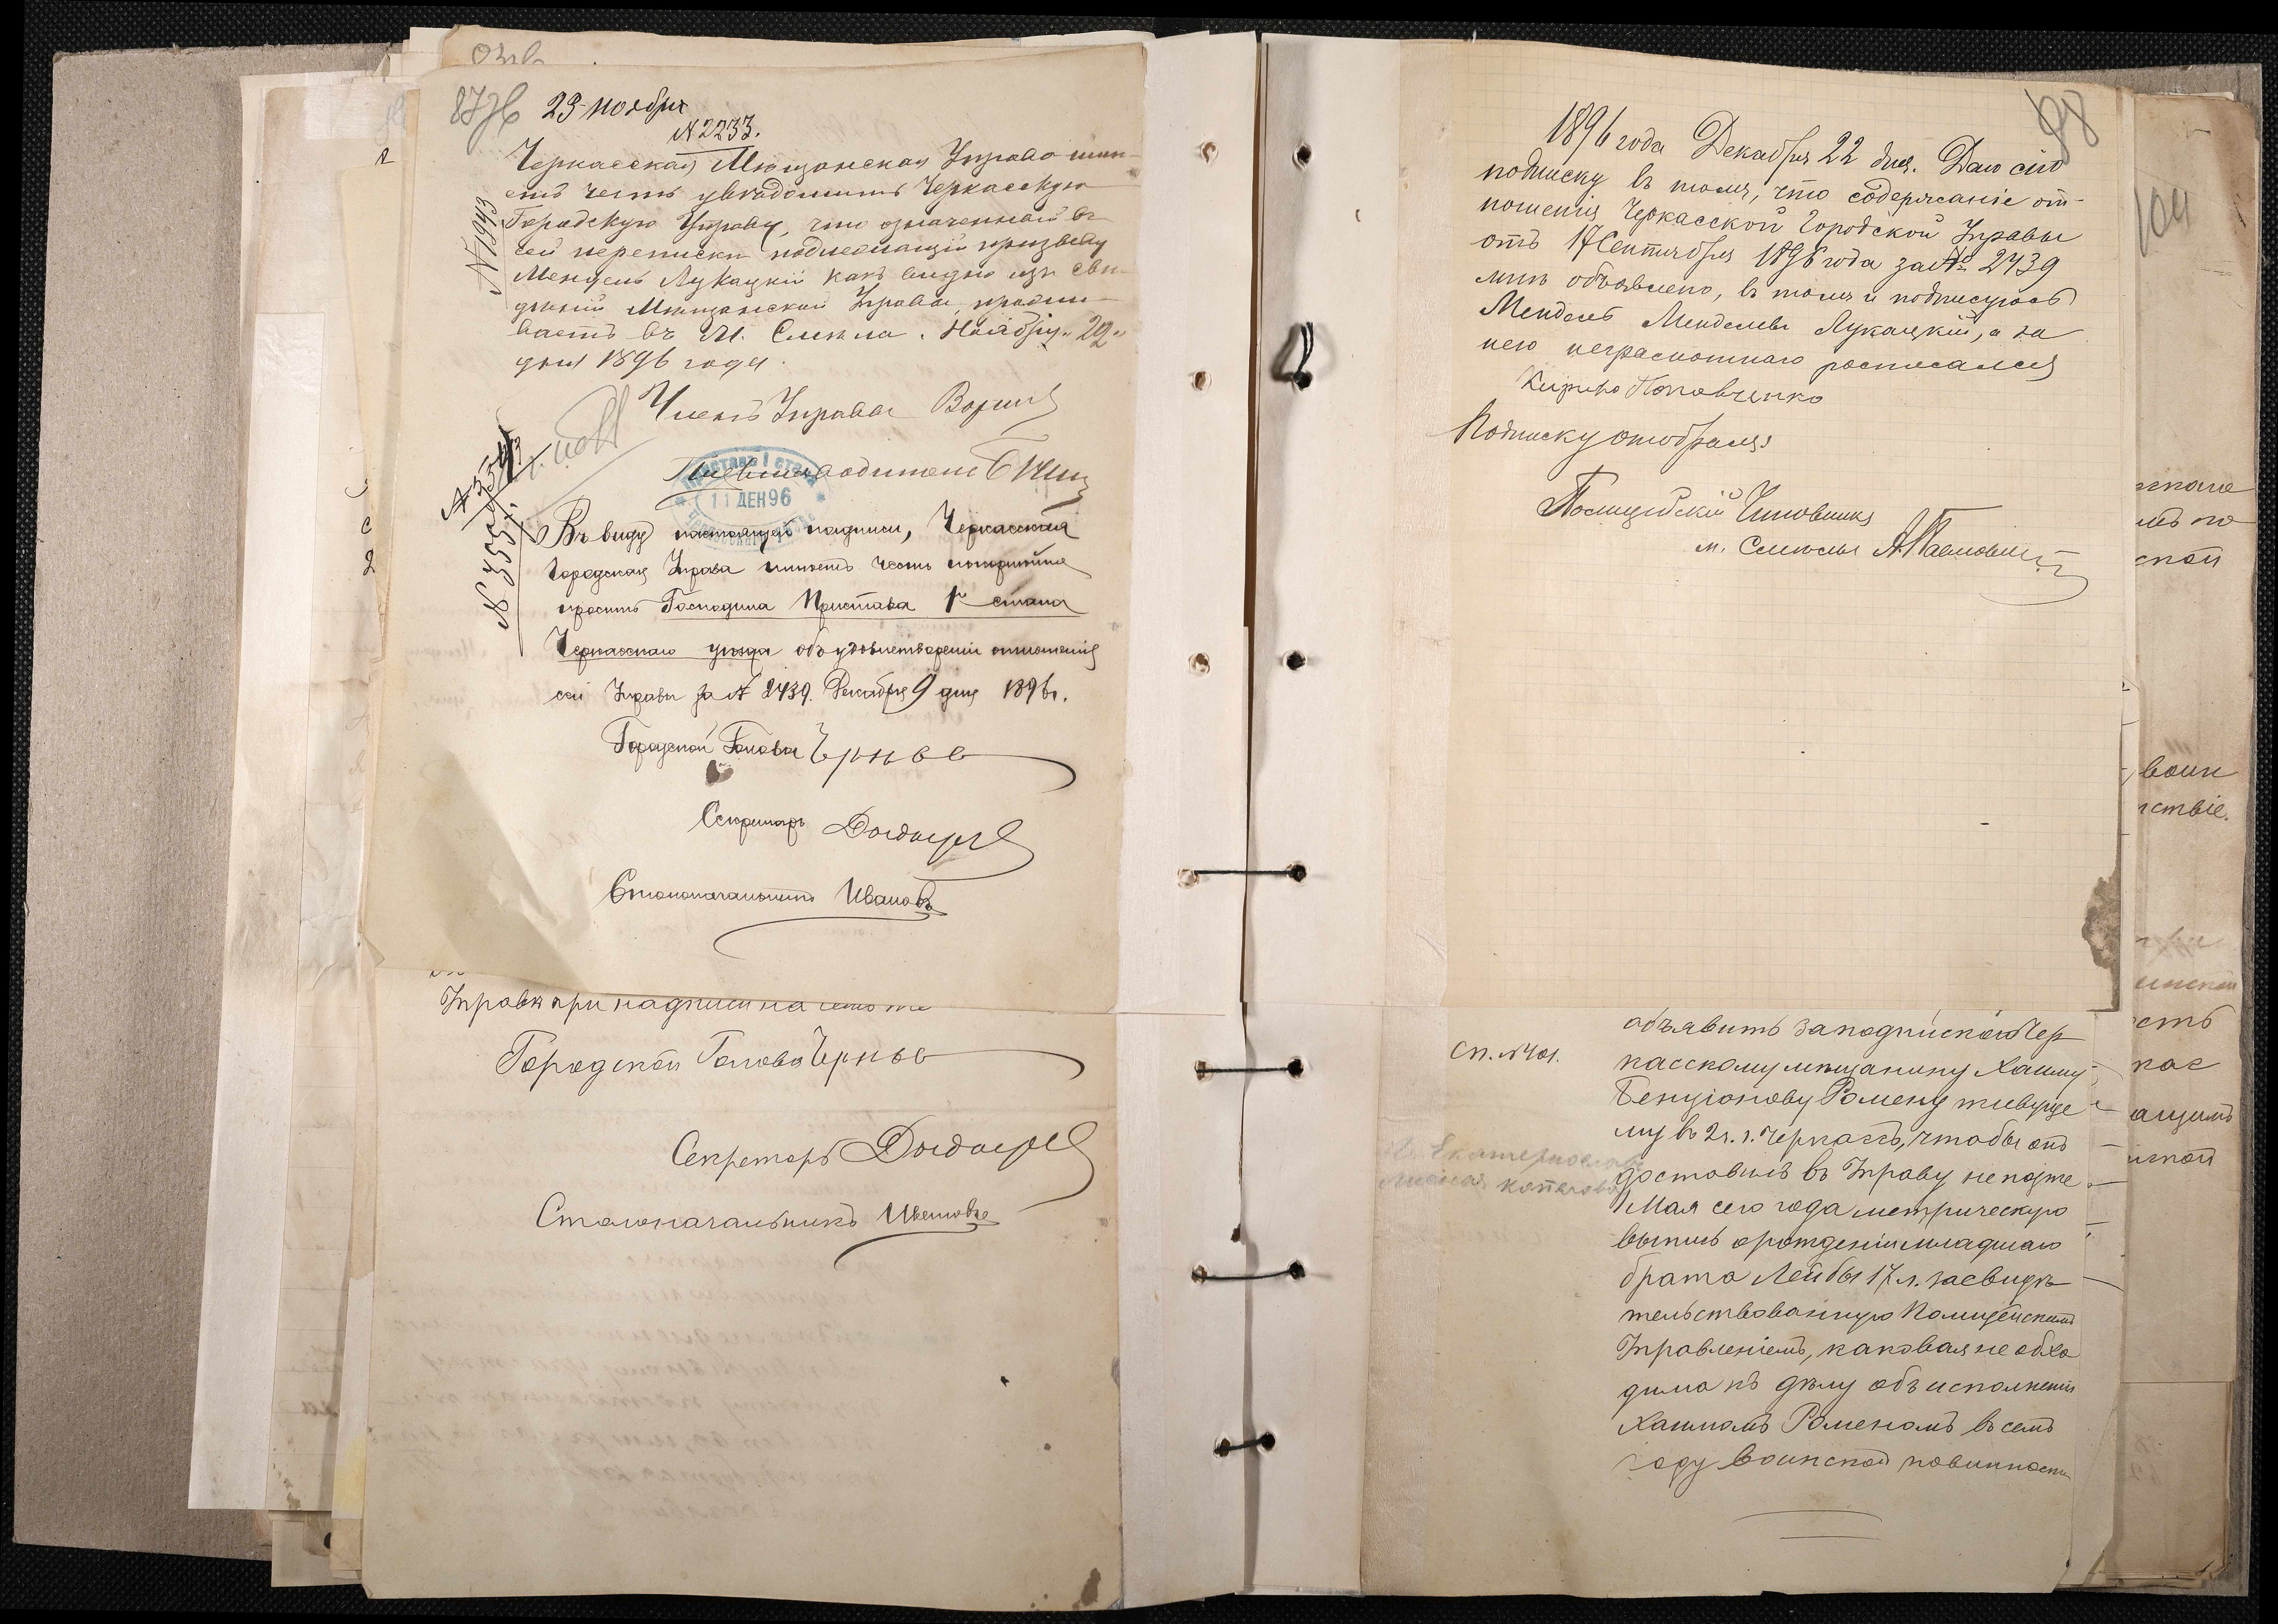 87 об
23 ноября
№ 2233.
Черкасская Мѣщанская Управа имѣ-
етъ честь увѣдомить Черкасскую
Городскую Управу, что означенный въ
сей перепискѣ подлежащій призыву
Мендель Лукацкій какъ видно изъ свѣ-
дѣній Мѣщанской Управы, прожи-
ваетъ въ М. Смѣла. Ноября „29„
дня 1896 года.
Членъ Управы
№ 1993
11 ДЕК 96
Въ виду настоящей надписи, Черкасская
Городская Управа имѣетъ честь покорнѣйше
просить Господина Пристава 1го стана
Черкасскаго уѣзда объ удовлетвореніи отношенія
сей Управы за № 2439. Декабря 9 дня 1896 г.
Городской Голова
Секретарь
Столоначальникъ Ивановъ
Управѣ при надписи на семъ же
Городской Голова
Секретарь
Столоначальникъ Ивановъ
98
1896 года Декабря 22 дня. Даю сію
подписку въ томъ, что содержаніе от-
ношенія Черкасской Городской Управы
отъ 17 Сентября 1896 года за № 2439
мнѣ объявлено, въ томъ и подписуюсь
Мендель Менделевъ Лукацкій, а за
него неграмотнаго росписался
Кирило Поповченко
Подписку отобралъ
Полицейскій Чиновникъ
м. Смѣлы
объявить за подпискою Чер
Сп. № 401.
касскому мѣщанину Хаиму
Бенціонову Ромену живуще
му въ 2 ч. г. Черкассъ, чтобы онъ
доставилъ въ Управу не позже
1 Мая сего года метрическую
выпись о рожденіи младшаго
брата Лейбы 17 л. засвидѣ
тельствованную Полицейскимъ
Управленіемъ, каковая необхо
дима къ дѣлу объ исполненіи
Хаимомъ Роменомъ въ семъ
году воинской повинности
104